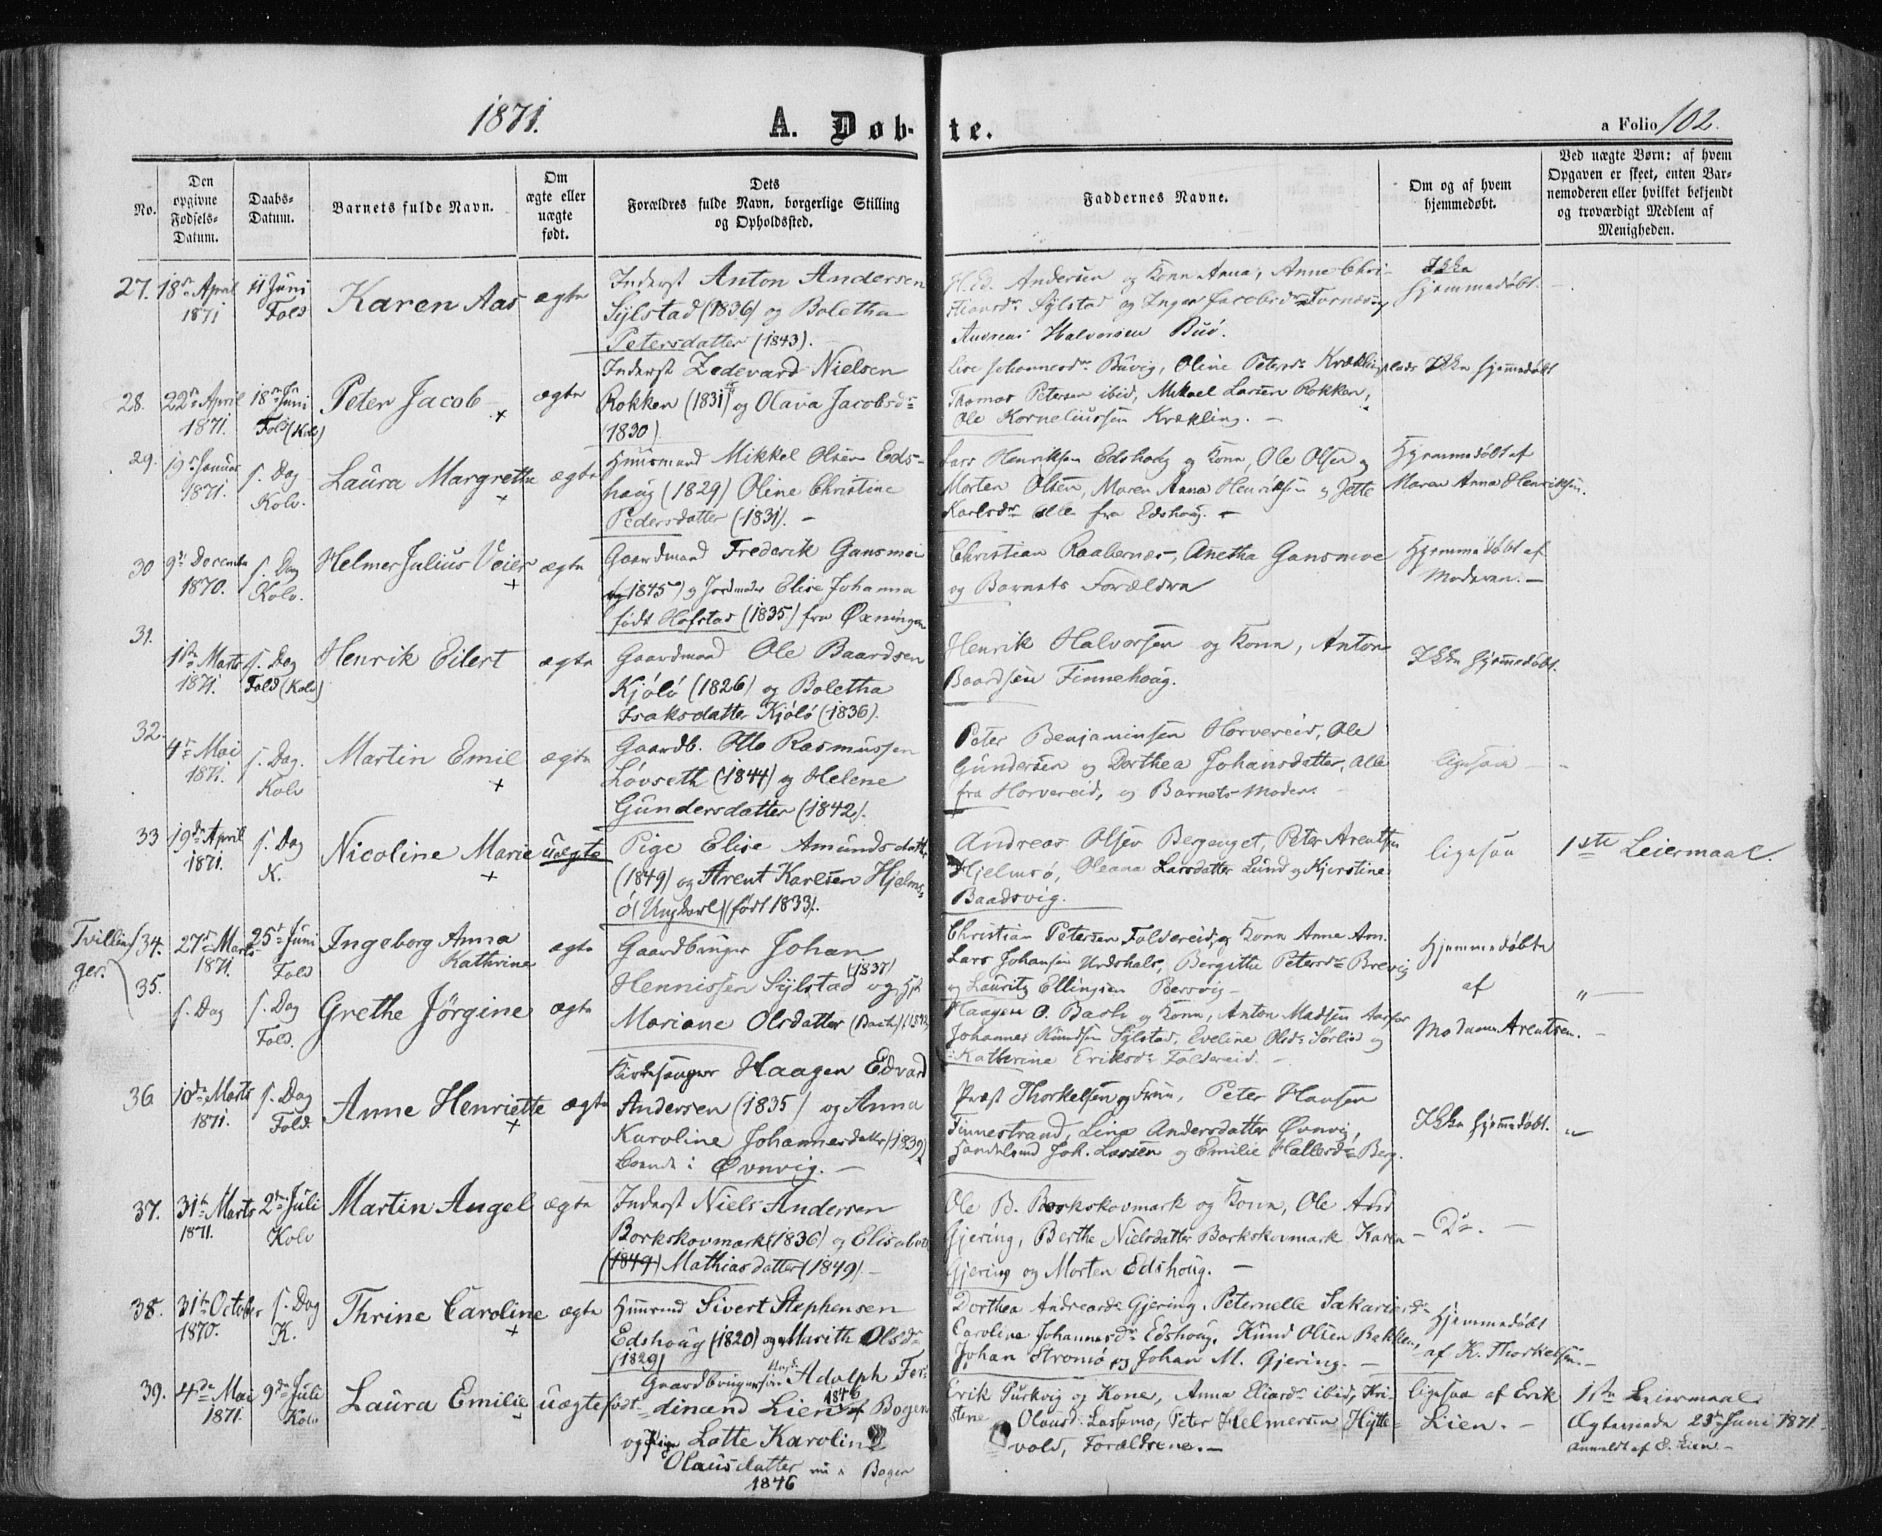 1871.
A. Døb-te.
a Folio 102.
No.
Den opgivne Fødsels-Datum.
Daabs-Datum.
Barnets fulde Navn.
Om ægte eller uægte født.
Dets Forældres fulde Navn, borgerlige Stilling og Opholdssted.
Faddernes Navne.
Om og af hvem hjemmedøbt.
Ved uægte Børn: af hvem Opgaven er skeet, enten Barnemoderen eller hvilket bekjendt og troværdigt Medlem af Menigheden.
27. 18de April 1871 11 Juni Fold Karen Aas ægte
Inderst Anton Andersen
Sylstad (1836) og Boletha
Petersdatter (1843).
Andersen og Kone Anna, Anne Chri-
Sylstad og Inger Jacobsdr
Andreas Halvorsen Buø.
Ikke hjemmedøbt.
28. 22de April 1871. 18de Juni Fold (Kolv) Peter Jacob ægte
Inderst Zedevard Nielsen
Rokken (1831) og Olava Jacobsdr
(1830)
Johannesdr Buvig, Oline Petersdr Kræklingplads
Thomas Petersen ibid, Mikael Larsen Rokken,
Ole Korneliussen Krækling. -
Ikke hjemmedøbt
29. 19de Januar 1871. s. Dag Kolv. Laura Margrethe ægte
Huusmand Mikkel Olsen Eds-
haug (1829) Oline Christine
Pedersdatter (1831). -
Lars Henriksen Edshaug og Kone, Ole Olsen og
Morten Olsen, Maren Anna Henriksen og Jette
Karlsdr alle fra Edshoug. -
Hjemmedøbt af
Maren Anna Henriksen.
30 9de December 1870. s. Dag Kolv. Helmer Julius Veier ægte
Gaardmand Frederik Gansmoe
(1845) og Jordmoder Elise Johanna
født Hofstad (1835) fra Øxningen
Christian Raabernæs, Anetha Gansmoe
og Barnets Forældre
Hjemmedøbt af
Moderen. -
31. 11te Marts 1871. s. Dag Fold (Kolv) Henrik Eilert ægte
Gaardmand Ole Baardsen
Kjølø (1826) og Boletha
Isaksdatter Kjølø (1836).
Henrik Halvorsen og Kone, Anton
Baardsen Finnehoug.
Ikke hjemmedøbt.
32. 4de Mai 1871. s. Dag. Kolv Martin Emil ægte
Gaardb. Otto Rasmussen
Løvseth (1844) og Helene
Gundersdatter (1842).
Peter Benjaminsen Horvereid, Ole
Gundersen og Dorthea Johansdatter, alle
fra Horvereid, og Barnets Moder.
ligesaa -
33 19de April 1871. s. Dag K. Nicoline Marie uægte
Pige Elise Amundsdatter
(1849) og Arent Karlsen Hjelms-
ø (Ungkarl) (født 1833).
Andreas Olsen Bergenget, Peter Arentsen
Hjelmsø, Oleana Larsdatter Lund og Kjerstine
Baadsvig.
ligesaa
1ste Leiermaal.
Tvillin-
ger.
34. 27de Marts 1871. 25de Juni Fold Ingeborg Anna Kathrine ægte
Gaardbruger Johan
Hennissen Sylstad (1837) og Hst
Mariane Olsdatter (Bach)
Christian Petersen Foldereid og Kone Anne
Lars Johansen Urdshals, Bergithe Petersdr Brevig
og Lauritz Ellingsen
Hjemmedøbte
af
Arentsen. -
35. s. Dag s. Dag Fold. Grethe Jørgine ægte
Haagen O. Bach og Kone, Anton Madsen
Johannes Knudsen Sylstad, Eveline Olsdr Sørlie og
Katherine Eriksdr Foldereid. -
36 10de Marts 1871. s. Dag Fold. Anne Henriette ægte
Kirkesanger Haagen Edvard
Andersen (1835) og Anna
Karoline Johannesdatter (1839)
boende i Øvnvig. -
Præst Thorkelsen og Frue, Peter Hansen
Finnestrand, Lina Andersdatter Øvnvig,
Joh. Larsen og Emilie Hallesdr Berg.
Ikke hjemmedøbt.
37. 31te Marts 1871. 2den Juli Kolv Martin Angel ægte
Inderst Niels Andersen
Borkskovmark (1836) og Elisabeth
(1849) Mathiasdatter (1849). -
Ole B. Borkskovmark og Kone, Ole And
Gjering, Berthe Nielsdatter Borkskovmark Karen
Gjering og Morten Edshoug. -
Do. -
38. 31te October 1870. s. Dag K. Thrine Caroline ægte
Huusmd Sivert Stephensen
Edshoug (1820) og Marith Olsdr
(1829)
Dorthea Andreasdr Gjering, Peternelle Sakariasdr
Caroline Johannesdr Edshoug, Knud Olsen Bakken,
Johan Stromø og Johan M. Gjering. -
Hjemmedøbt
af K. Thorkelsen. -
39. 4de Mai 1871. 9de Juli Kolv Laura Emilie uægte født
Gaardbrugersøn Adolph Fer-
dinand Lien 1846 af Bogen
og Pige Lotte Karoline
Olausdatter nu i Bogen
1846
Erik Purkvig og Kone, Anna Eliasdr ibid, Kri-
stene Olausd. Lassemo, Peter Helmersen Hytte-
vold, Forældrene. -
ligesaa af Erik
Lien. -
1ste Leiermaal
Ægteviede 23de Juni 1871.
Anmeldt af E. Lien -